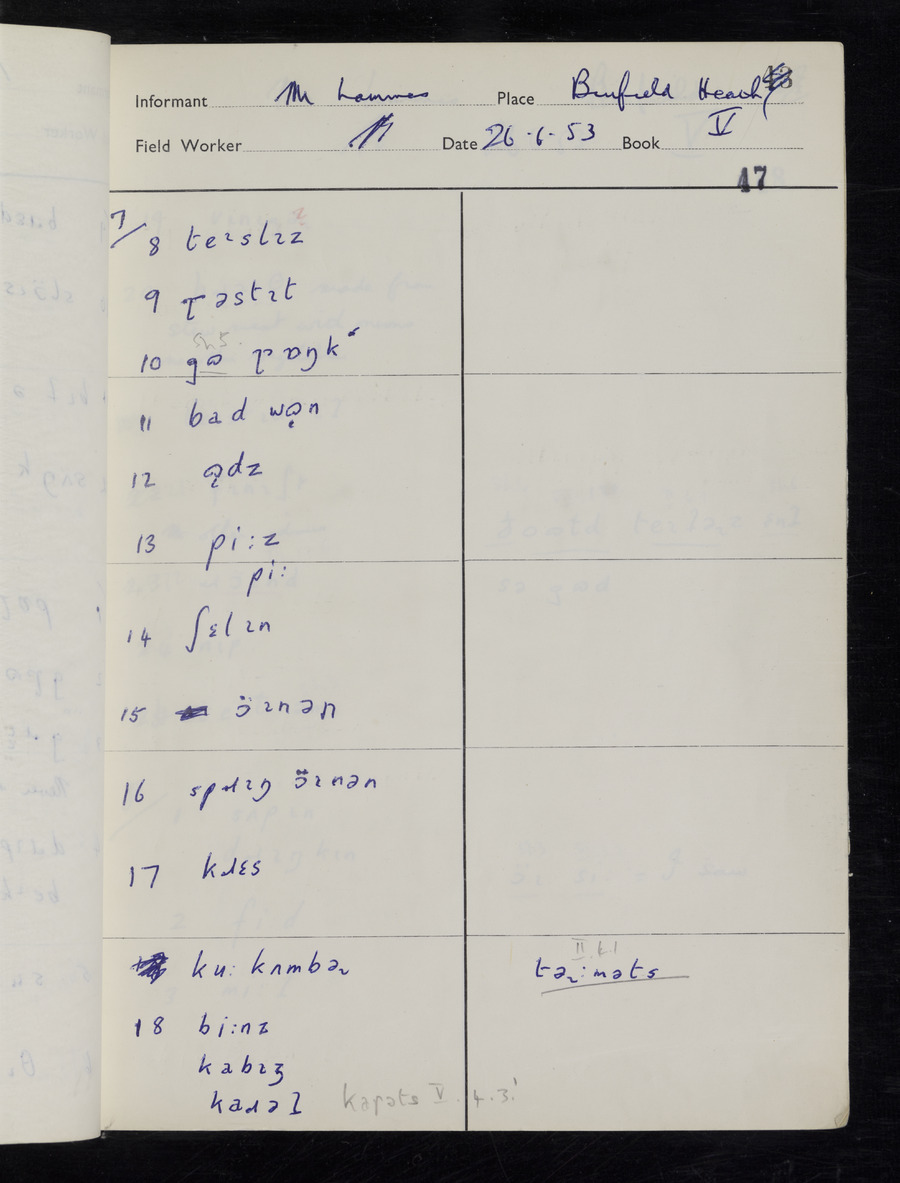 Informant Mr Lammas Place Binfield Heath
Field Worker Date 26·6·53 Book V
47
7/8 teɪstɪz
9 ɹəstɪt
10 gɒ ɹɒŋk
11 bad wɒ̜n
12 ɒ̜dz
13 pi:z
pi:
14 ʃɛlɪn
15 ɔ̈ɪnən
16 spɹɪŋ ɔ̈ɪnən
17 kɹɛs
ku:kʌmbəɹ
II. k.1
tə:məts
18 bi:nz
kabɪʒ
kaɹəʈ kaɹəts V.4.3.